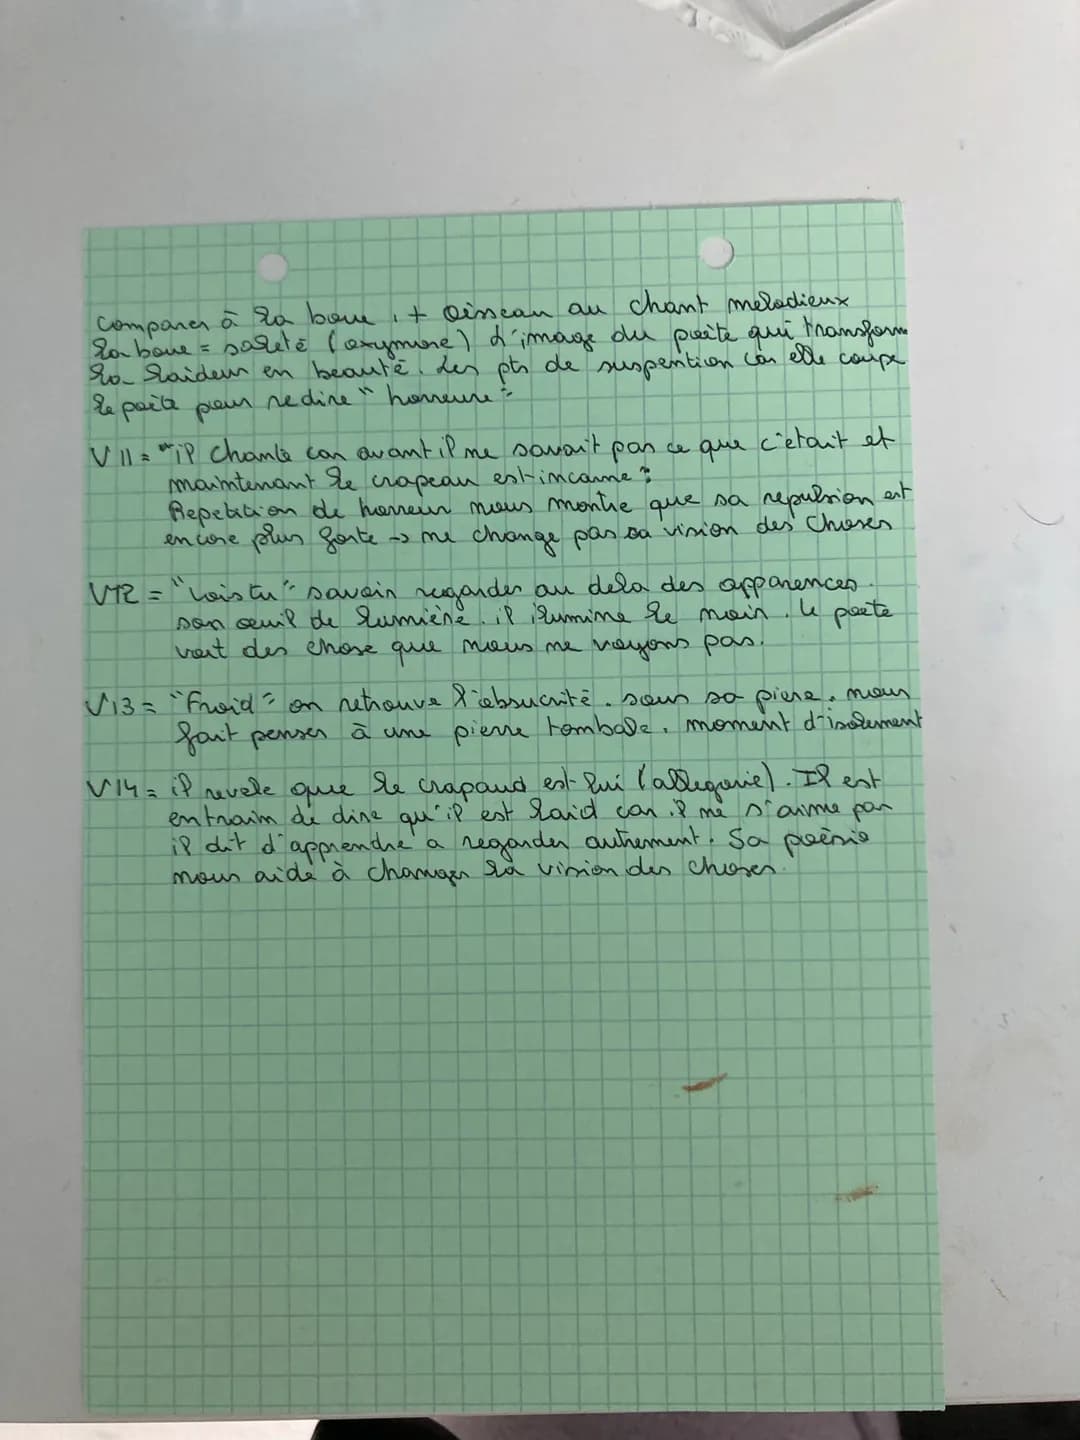 comparer à la boue, + Oisseau au chant melodieux
la boue = saleté (oxymore) d'image du poète qui transforme
la laideur en beauté. Les pts de suspention car elle coupe
le poète pour redire "horreure"
V11 = "il chante car avant il ne savait pas ce que c'etait et
maintenant le crapeau est incarne"
Repetation de horreur nous montre que sa repulsion est
encore plus forte -> ne change pas sa vision des choses
V12 = "Vois tu" savoir regarder au dela des apparences.
son oeuil de lumière. il ilumine le noir. le poete
voit des chose que nous ne voyons pas.
V13 = "Froid" on retrouve l'obsucrité. sous sa piere. nous
fait penser à une pierre tombale, moment d'isolement
V14 = il revele que le crapaud est lui (allegorie). Il est
entraim de dire qu'il est laid car il ne s'aime pas
il dit d'apprendre a regarder autrement. Sa poèsie
nous aide à changer la vision des choses.